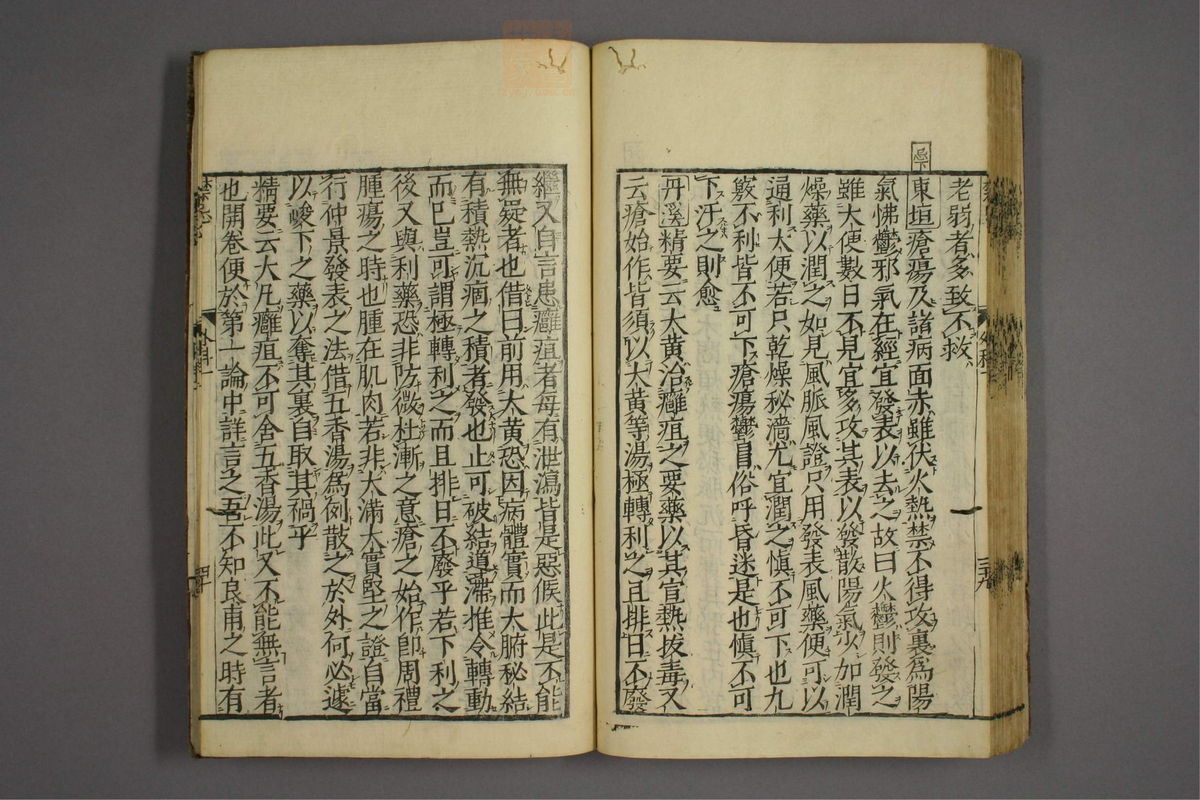 老弱者多致不救
忌下
東垣瘡瘍及諸病面赤雖伏火熱禁不得攻裏爲陽
氣怫鬱邪氣在經宜發表以去之故曰火鬱則發之
雖大便數日不見宜多攻其表以發散陽氣少加潤
燥藥以潤之如見風脈風證只用發表風藥便可以
通利大便若只乾燥秘澁尤宜潤之愼不可下也九
竅不利皆不可下瘡瘍鬱冒俗呼昏迷是也愼不可
下汗之則愈
丹溪精要云大黄治癰疽之要藥以其宣熱拔毒又
云瘡始作皆須以大黄等湯極轉利之且排日不廢
繼又自言患癰疽者每有泄瀉皆是惡候此是不能
無疑者也借曰前用大黄恐因病體實而大腑秘結
有積熱沉痼之積者發也止可破結導滯推令轉動
而已豈可謂極轉利之而且排日不廢乎若下利之
後又與利藥恐非防微杜漸之意瘡之始作卽周禮
腫瘍之時也腫在肌肉若非大滿大實堅之證自當
行仲景發表之法借五香湯爲例散之於外何必遽
以峻下之藥以奪其裏自取其禍乎
精要云大凡癰疽不可舍五香湯此又不能無言者
也開卷便於第一論中詳言之吾不知良甫之時有